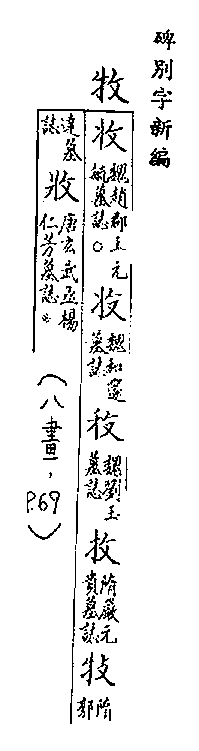 碑別字新編
牧
魏趙郡王元毓墓誌。魏和邃墓誌 魏劉玉墓誌 隋嚴元貴墓誌 隋郭
達墓誌 唐玄武丞楊仁芳墓誌。
(八畫,P.69)